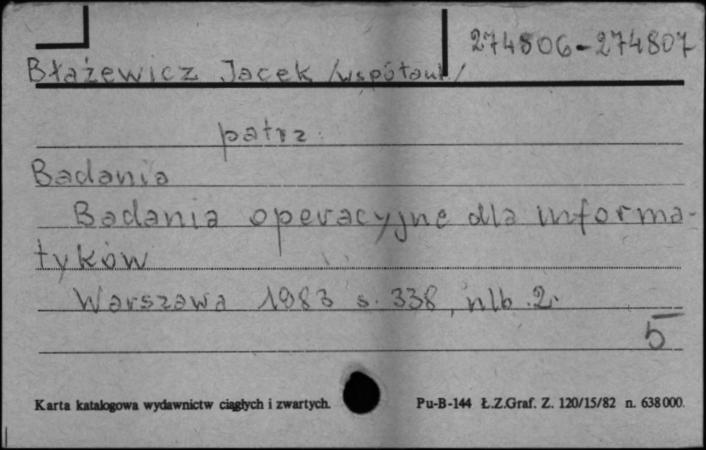 274806-274807
Błażewicz Jacek /współaut./
patrz:
Badania
Badania operacyjne dla informa-
tyków
Warszawa 1983 s. 338, nlb. 2.
5
Karta katalogowa wydawnictw ciągłych i zwartych. Pu-B-144 Ł.Z.Graf. Z. 120/15/82 n. 638000.